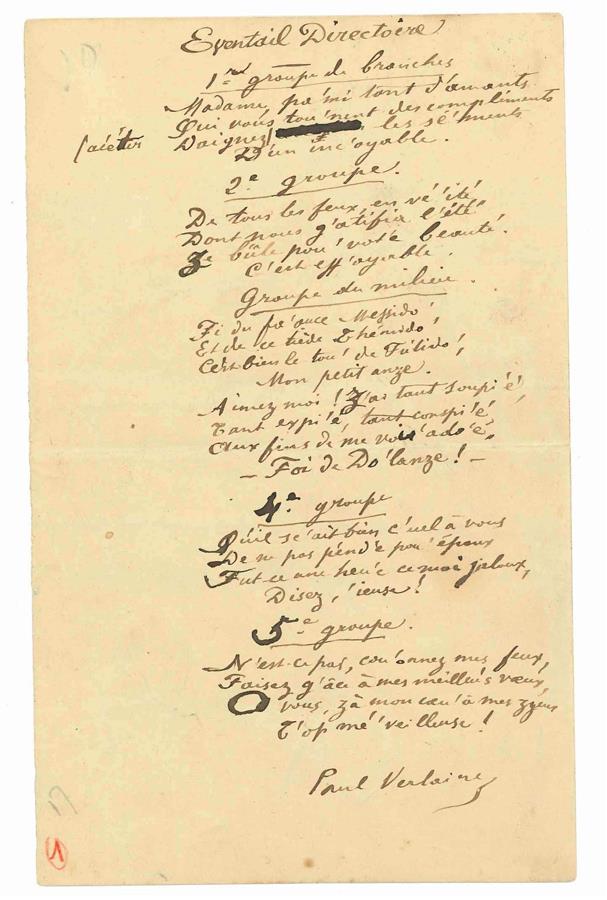 Eventail Directoire
1er groupe de branches
Madame, pa'mi tant d'amants
Qui vous tou'nent des compliments
Daignez les se'ments
D'un inc'oyable.
2e groupe.
De tous les feux, en vé'ité,
Dont nous g'atifia l'été
Ze bûle pou' vot'e beauté.
C'est eff'oyable!
Groupe du milieu.
Fi du fa'ouce Messido',
Et de ce tiède Thémido',
C'est bien le tou' de Fútido',
Mon petit anze.
Aimez moi! Z'ai tant soupi'é,
Tant expi'é, tant conspi'é
Aux fins de me voi' ado'é,
- Foi de Do'lanze! -
4e groupe
Qu'il se'ait bien c'uel à vous
De ne pas pend'e pou' époux
Fut-ce une heu'e ce moi jaloux,
Disez, 'ieuse!
5e groupe.
N'est-ce pas, cou'onnez mes feux,
Faisez g'âce à mes meilleu's vœux,
O vous, zà mon cœu' à mes zyeux
T'op mé'veilleuse!
Paul Verlaine
1